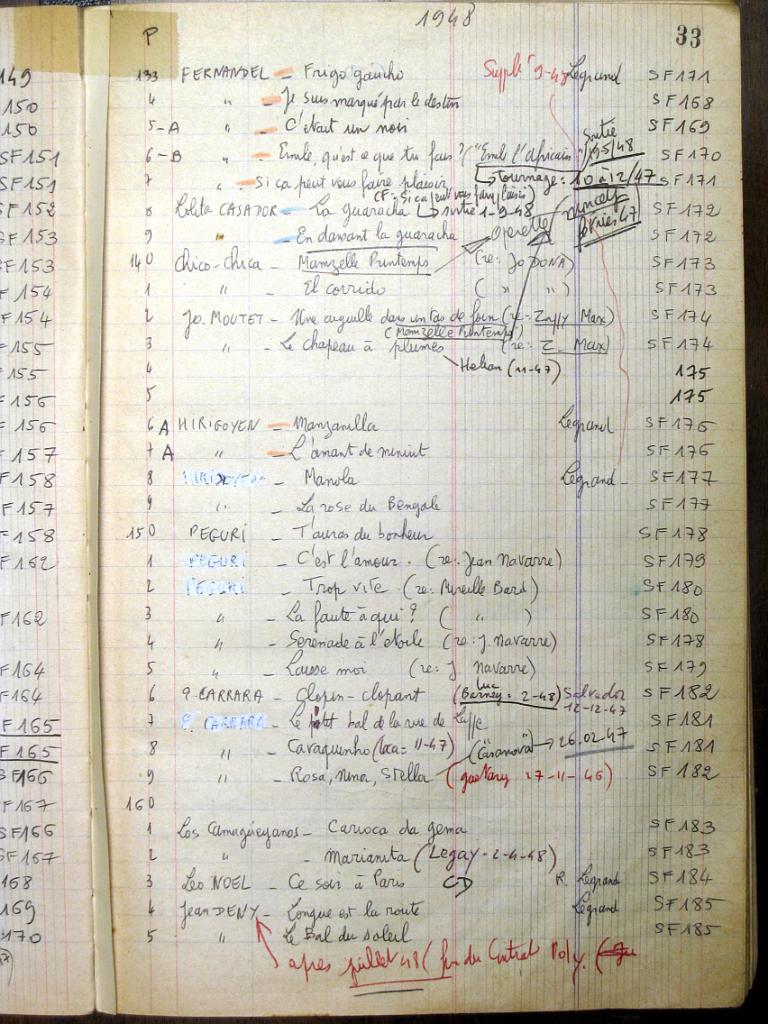 1948
33
P
133 FERNANDEL - Frigo gaucho Supplt 9-48 Legrand SF171
4 " - Je suis marqué par le destin SF168
5-A " - C'était un noir SF169
6-B " - Emile, qu'est ce que tu fais? ("Emile l'africain") Sortie 19/5/48 SF170
7 " - Si ça peut vous faire plaisir tournage: 10 à 12/47 SF171
(CF: Si ça peut vous faire plaisir)
8 Lolita CASADOR - La guaracha sortie 1-9-48 SF172
9 " - En dansant la guaracha opérette février 47 SF172
140 Chico-chica - Mamzelle Printemps (re: Jo DONA) SF173
1 " - El corrido ( " " ) SF173
2 Jo. MOUTET - Une aiguille dans un tas de foin (re: Zappy Max) SF174
(Mamzelle Printemps)
3 " - Le chapeau à plumes (re: Z. Max) SF174
4 Helian (11-47) 175
5 175
6 A HIRIGOYEN - Manzanilla Legrand SF176
7 A " - L'amant de minuit SF176
8 HIRIGOYEN - Manola Legrand SF177
9 " - La rose du Bengale SF177
150 PEGURI - T'auras du bonheur SF178
1 PEGURI - C'est l'amour. (re: Jean Navarre) SF179
2 PEGURI - Trop vite (re: Mireille Bard) SF180
3 " - La faute à qui? ( " ) SF180
4 " - Sérénade à l'étoile (re: J. Navarre) SF178
5 " - Laisse moi (re: J. Navarre) SF179
6 E. CARRARA - Clopin-clopant (Luc Barney: 2-48) Salvador 12-12-47 SF182
7 E. CARRARA - Le petit bal de la rue de Lappe SF181
8 " - Cavaquinho (loca= 11-47) (Casanova) → 26.02.47 SF181
9 " - Rosa, Nina, Stella (gaetary 27-11-46) SF182
160
1 Los Camagüeyanos - Carioca da gema SF183
2 " - Marianita (Legay - 2-4-48) SF183
3 Leo NOEL - Ce soir à Paris CD R. Legrand SF184
4 Jean DENY - Longue est la route Legrand SF185
5 " Le Bal du soleil SF185
après juillet 48 (fin du Contrat Poly.
149
150
150
SF151
SF151
SF152
SF153
SF153
F154
F154
F155
F155
F156
F156
F157
F158
F157
F158
F162
F162
F164
F164
F165
F165
SF166
F167
SF166
SF167
168
169
170